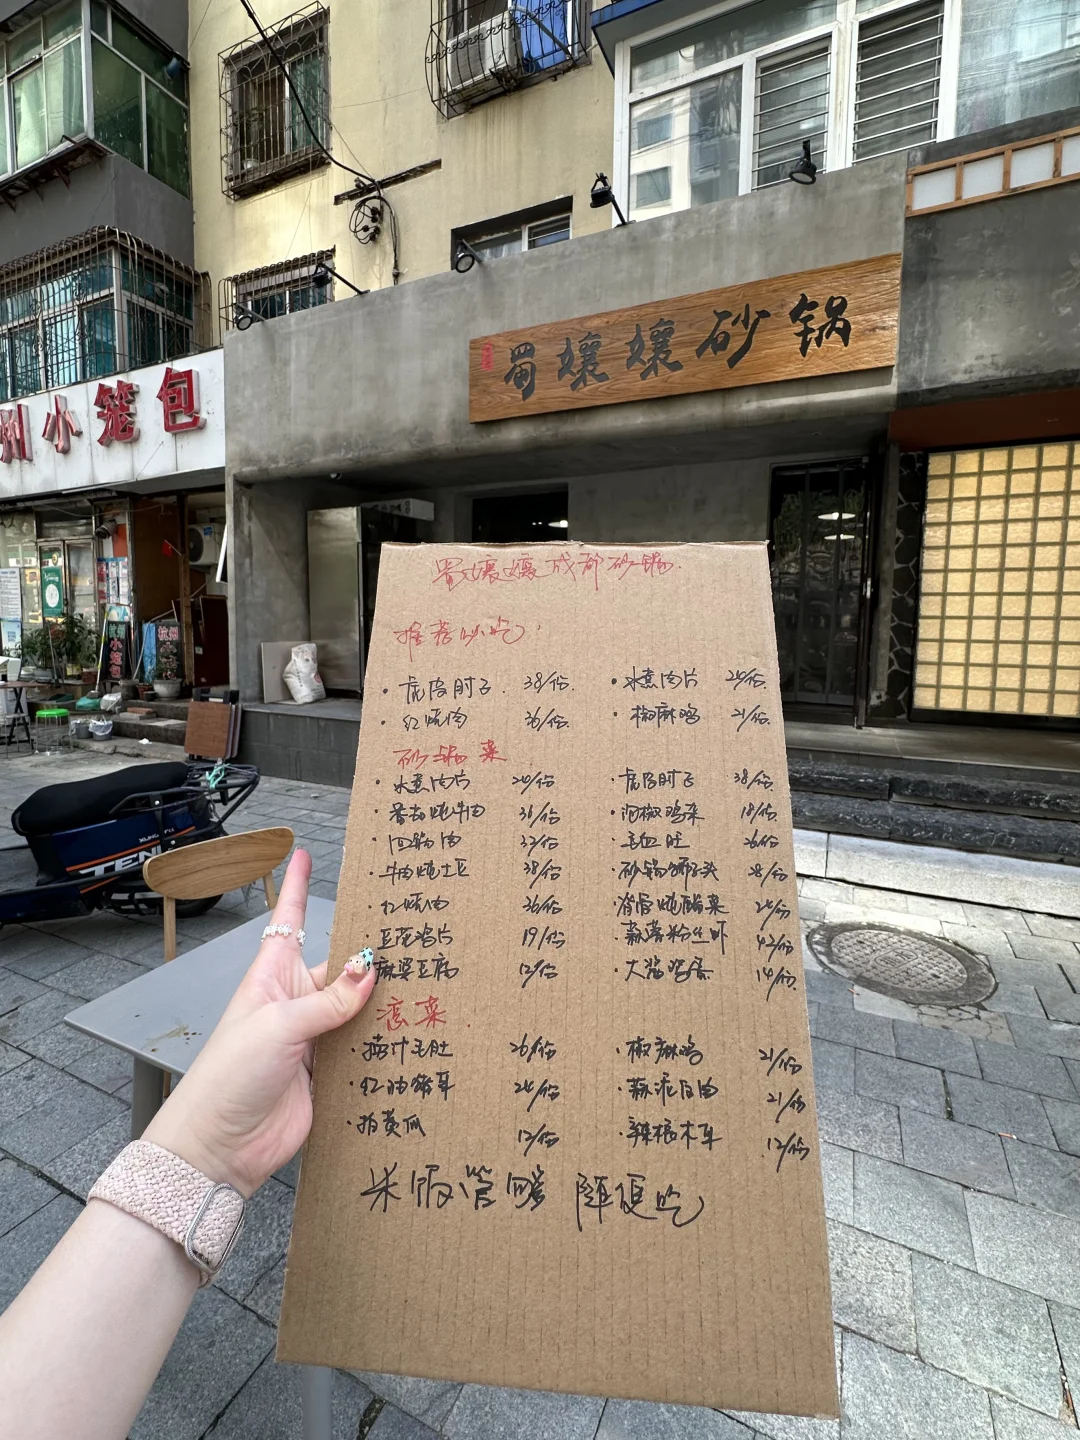 蜀孃孃砂锅
州小笼包
杭州小笼包
蜀孃孃成都砂锅.
推荐必吃,
· 虎皮肘子. 38/份. · 水煮肉片 26/份.
· 红烧肉 36/份. · 椒麻鸡 21/份.
砂锅菜
· 水煮肉片 26/份 · 虎皮肘子 38/份
· 番茄炖牛肉 31/份 · 泡椒鸡杂 18/份
· 回锅肉 33/份 · 毛血旺 26/份
· 牛肉炖土豆 38/份 · 砂锅狮子头 28/份
· 红烧肉 36/份 · 脊骨炖酸菜 26/份
· 豆花鸡片 19/份 · 蒜蓉粉丝虾 42/份
麻婆豆腐 12/份 · 大酱鸡蛋 14/份.
凉菜.
· 烧汁毛肚 26/份 · 椒麻鸡 21/份
· 红油猪耳 24/份 · 蒜泥白肉 21/份
· 拍黄瓜 12/份 · 辣根木耳 12/份
米饭管够 随便吃